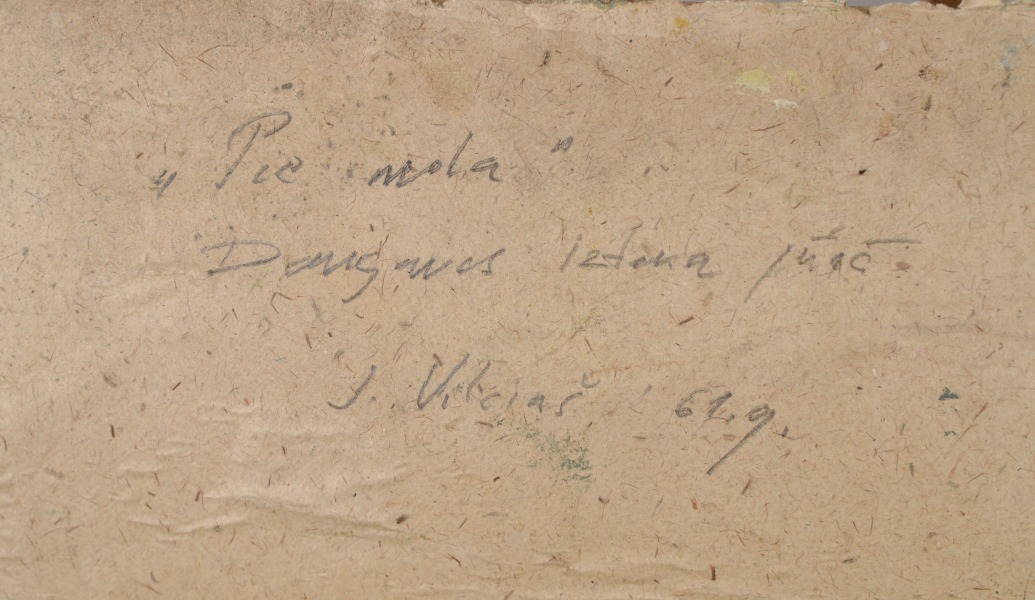 „Pie mola"
Daugavas ieteka jūrā
J. Vilciņš 61.g.